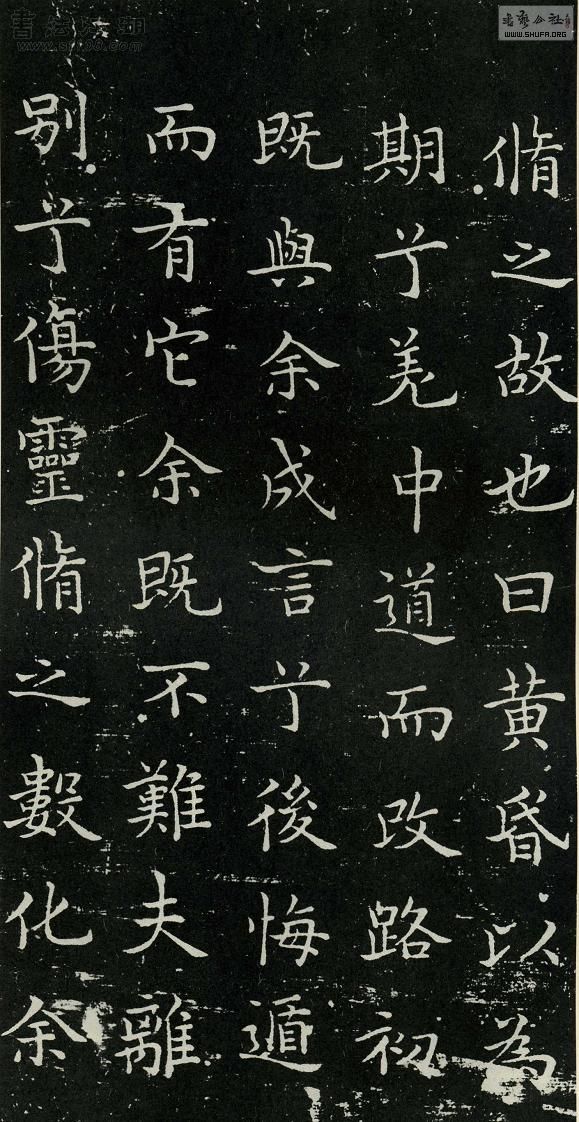 脩之故也曰黄昏以為
期兮羌中道而改路初
既與余成言兮後悔遁
而有它余既不難夫離
别兮傷靈脩之數化余
書藝公社
WWW.SHUFA.ORG